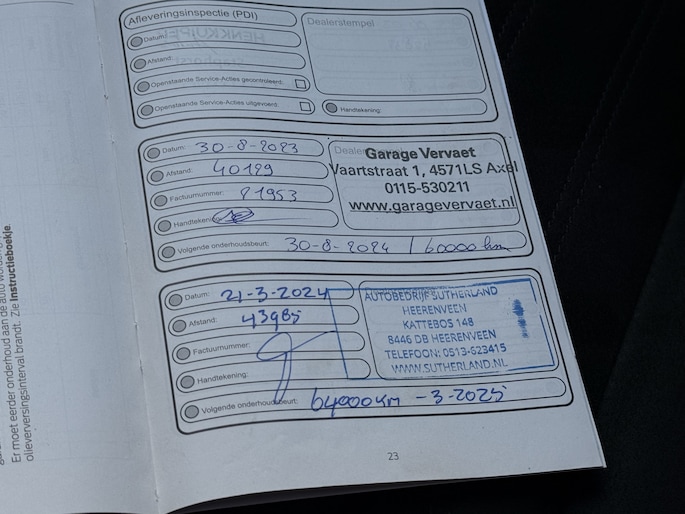 Afleveringsinspectie (PDI)
Dealerstempel
Datum:
Afstand:
Openstaande Service-Acties gecontroleerd:
Openstaande Service-Acties uitgevoerd:
Handtekening:
Datum: 30-8-2023
Afstand: 40129
Factuurnummer: 21953
Handtekening:
Volgende onderhoudsbeurt: 30-8-2024 / 60000 km
Garage Vervaet
Vaartstraat 1, 4571LS Axel
0115-530211
www.garagevervaet.nl
Datum: 21-3-2024
Afstand: 43985
Factuurnummer:
Handtekening:
Volgende onderhoudsbeurt: 64000 km -3-2025
AUTOBEDRIJF SUTHERLAND
HEERENVEEN
KATTEBOS 148
8446 DB HEERENVEEN
TELEFOON: 0513-623415
WWW.SUTHERLAND.NL
23
Er moet eerder onderhoud aan de auto worden
olieverversingsinterval brandt. Zie Instructieboekje.